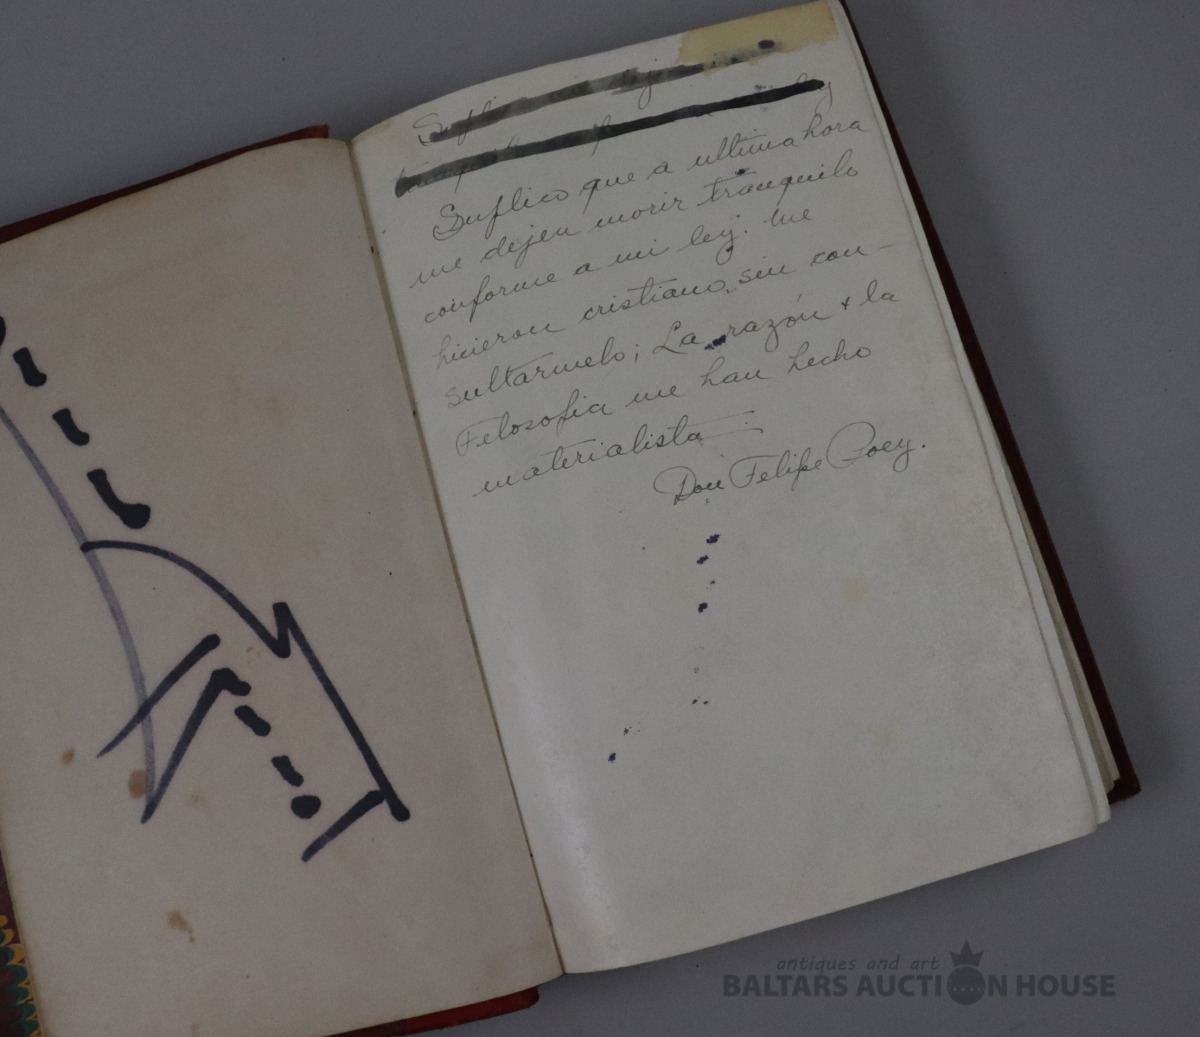 Suplico que a ultima hora
me dejen morir tranquilo
conforme a mi ley. Me
hicieron cristiano, sin con-
sultarmelo; La razón + la
Filosofia me han hecho
materialista
Don Felipe Poey.
antiques and art
BALTARS AUCTION HOUSE